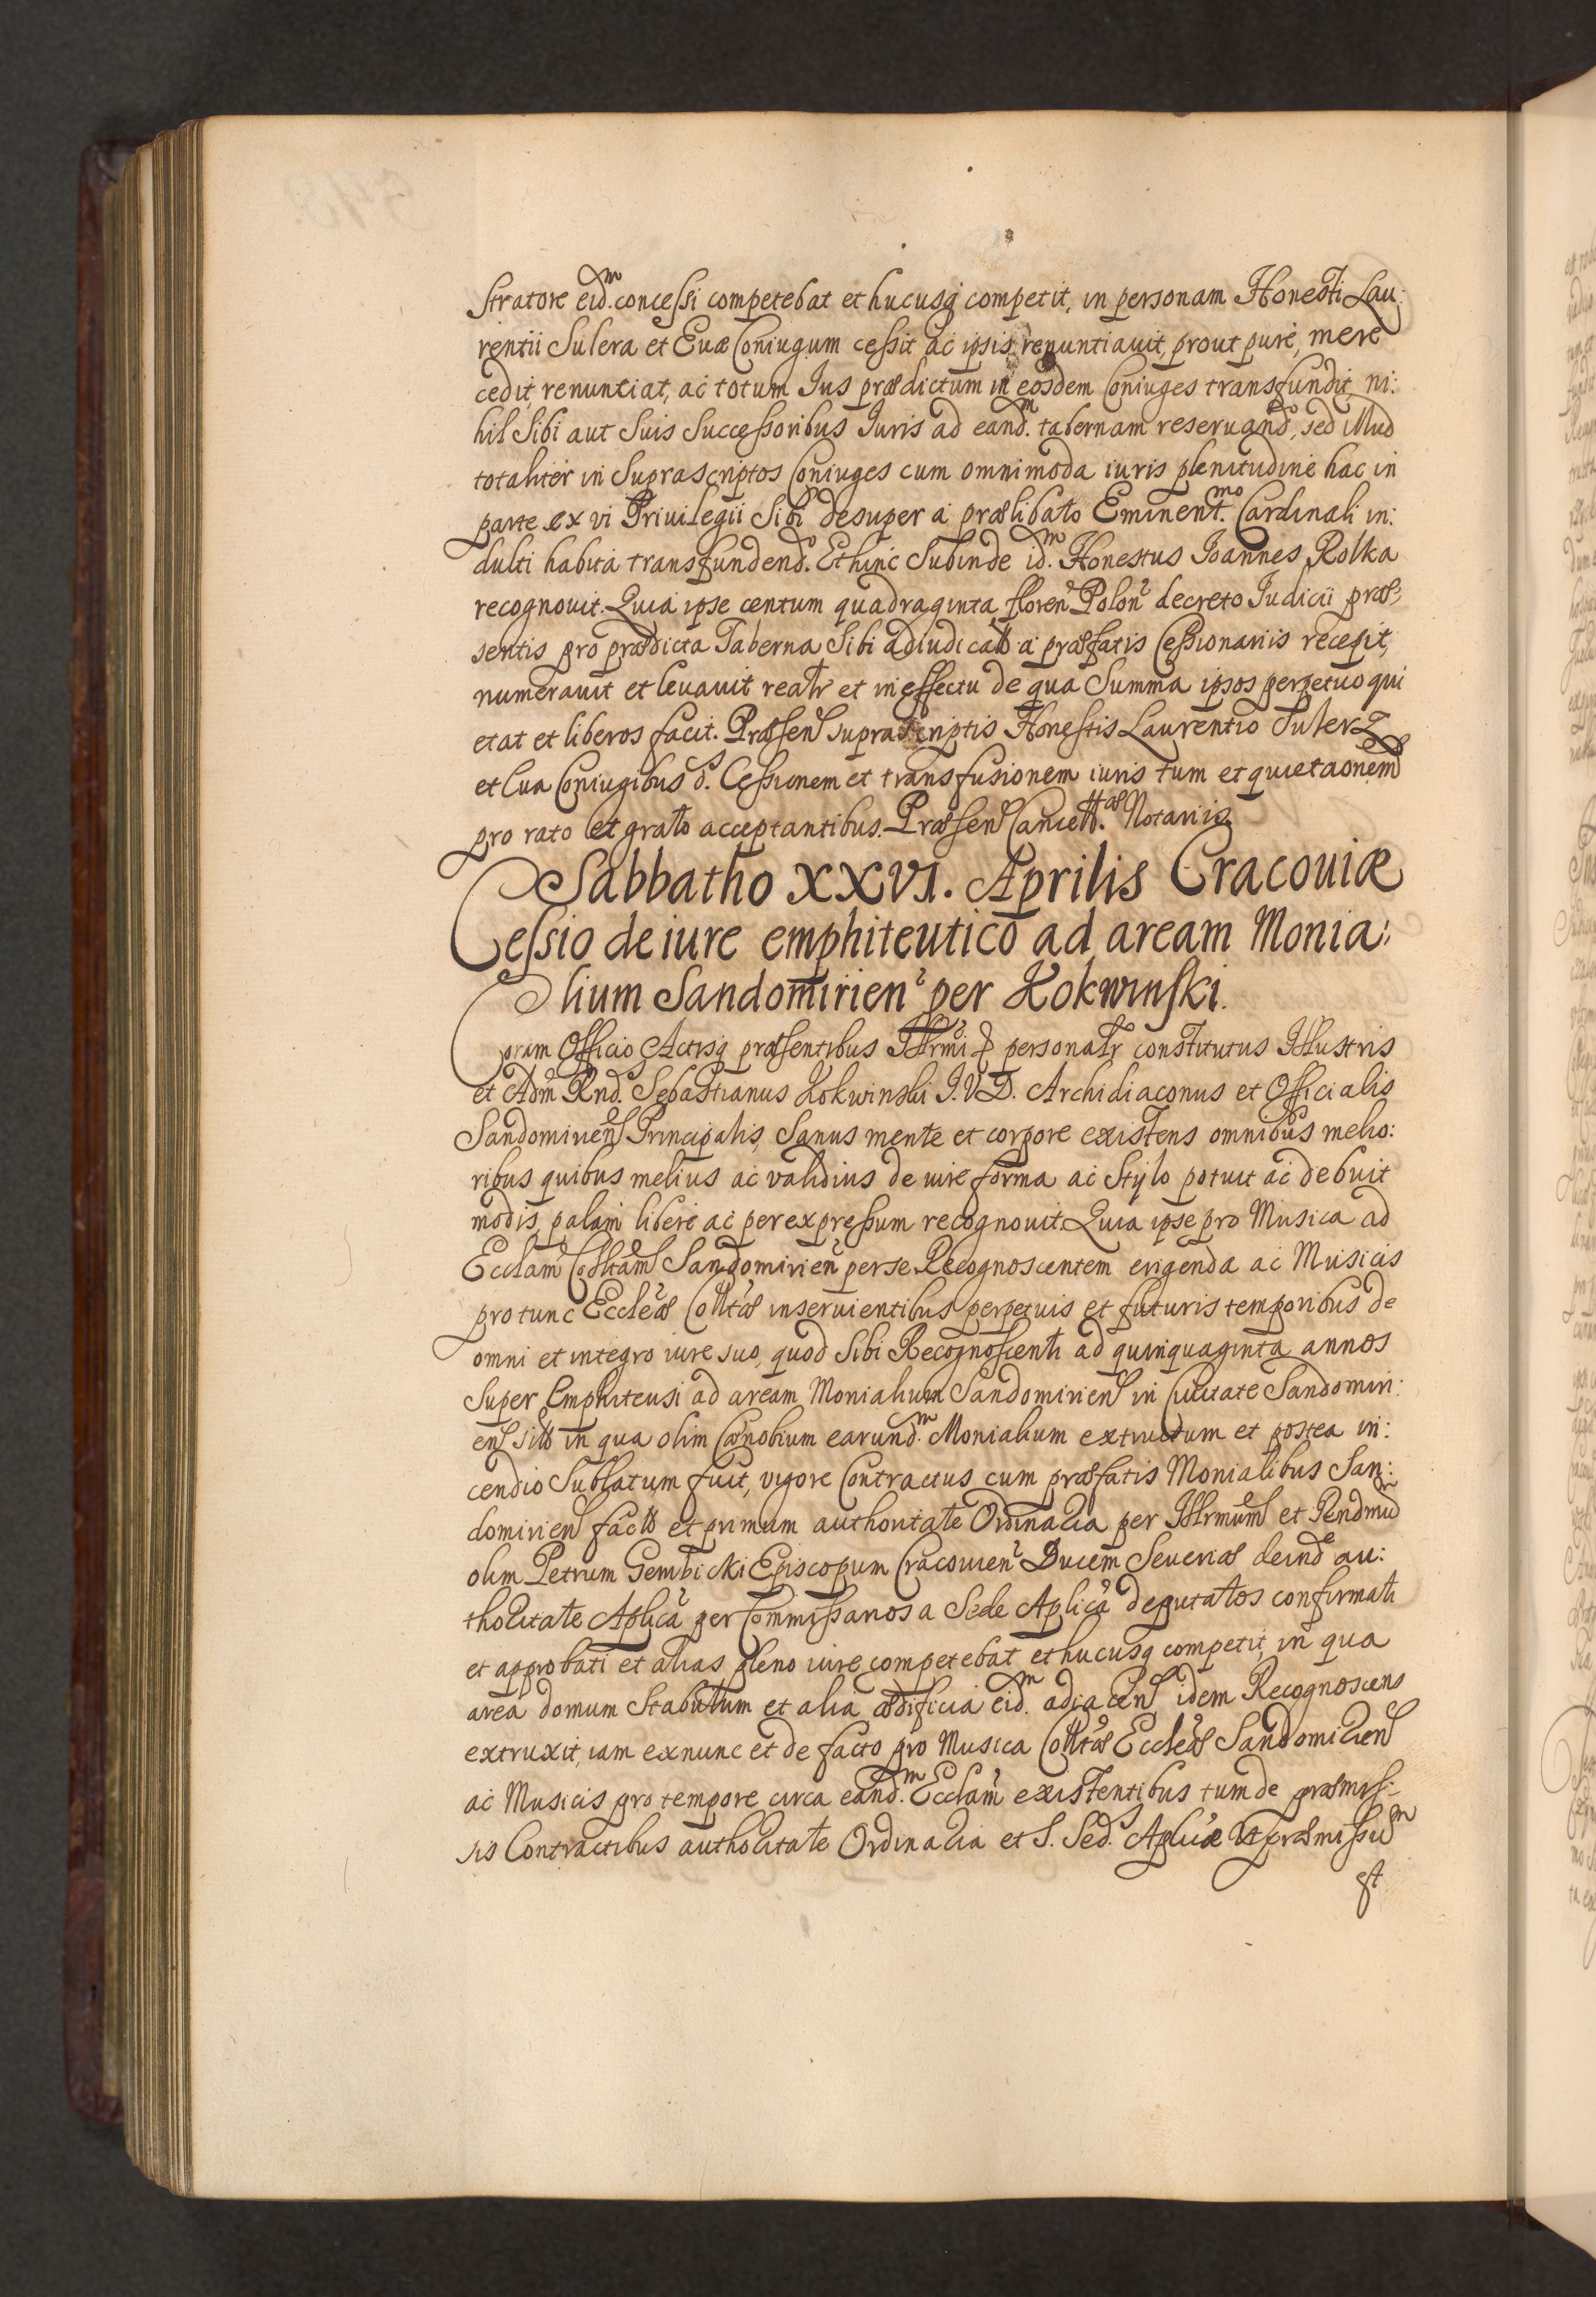 stratore eid.m concessi competebat et hucusq competit, in personam Honesti Lau:
rentii Sulera et Euæ Coniugum cessit ac ipsis renuntiauit, prout pure, mere
cedit, renuntiat, ac totum Ius prædictum in eosdem Coniuges transfundit, ni:
hil Sibi aut Suis Successoribus Iuris ad eand.m tabernam reseruand°, sed illud
totaliter in Suprascriptos Coniuges cum omnimoda iuris plenitudine hac in
parte ex vi Priuilegii Sibi desuper a prælibato Eminent.mo Cardinali in:
dulti habita transfundend°. Et hinc Subinde id.m Honestus Ioannes Rolka
recognouit. Quia ipse centum quadraginta floren Polon decreto Iudicii præ:
sentis pro prædicta Taberna Sibi adiudicatos a præfatis Cessionariis recepit,
numerauit et leuauit realr et in effectu de qua Summa ipsos perpetuo qui
etat et liberos facit. Præsen suprascriptis Honestis Laurentio Suler
et Eua Coniugibus d. Cessionem et transfusionem iuris tum et quietaonem
pro rato et grato acceptantibus. Præsen Cancell.æ Notariis
Sabbatho XXVI. Aprilis Cracouiæ
Cessio de iure emphiteutico ad aream Monia:
lium Sandomirien per Kokwinski.
Coram Officio Actisq præsentibus Illrmi personalr constitutus Illustris
et Adm Rnd. Sebastianus Kokwinski I.V.D. Archidiaconus et Officialis
Sandomirien Principalis, Sanus mente et corpore existens omnibus melio:
ribus quibus melius ac validius de iure forma ac Stylo potuit ac debuit
modis, palam libere ac per expressum recognouit. Quia ipse pro Musica ad
Ecclam Colltam Sandomirien per se Recognoscentem erigenda ac Musicis
pro tunc Eccleæ Colltæ inseruientibus perpetuis et futuris temporibus de
omni et integro iure suo, quod Sibi Recognoscenti ad quinquaginta annos
Super Emphiteusi ad aream Monialium Sandomirien in Ciuitate Sandomiri:
en sito in qua olim Cœnobium earund.m Monialium extructum et postea in:
cendio Sublatum fuit, vigore Contractus cum præfatis Monialibus San:
domirien facto et primum authoritate Ordinaria per Illrmum et Rendmu
olim Petrum Gembicki Episcopum Cracouien Ducem Seueriæ deind au:
thoritate Aplica per Commissarios a Sede Aplica deputatos confirmati
et approbati et alias pleno iure competebat et hucusq competit, in qua
area domum Stabulum et alia ædificia eid.m adiacen idem Recognoscens
extruxit, iam exnunc et de facto pro Musica Colltæ Eccleæ Sandomirien
ac Musicis pro tempore circa eand.m Ecclam existentibus tum de præmiss:
is Contractibus authoritate Ordinaria et S. Sed. Aplicæ Ut præmissu
est